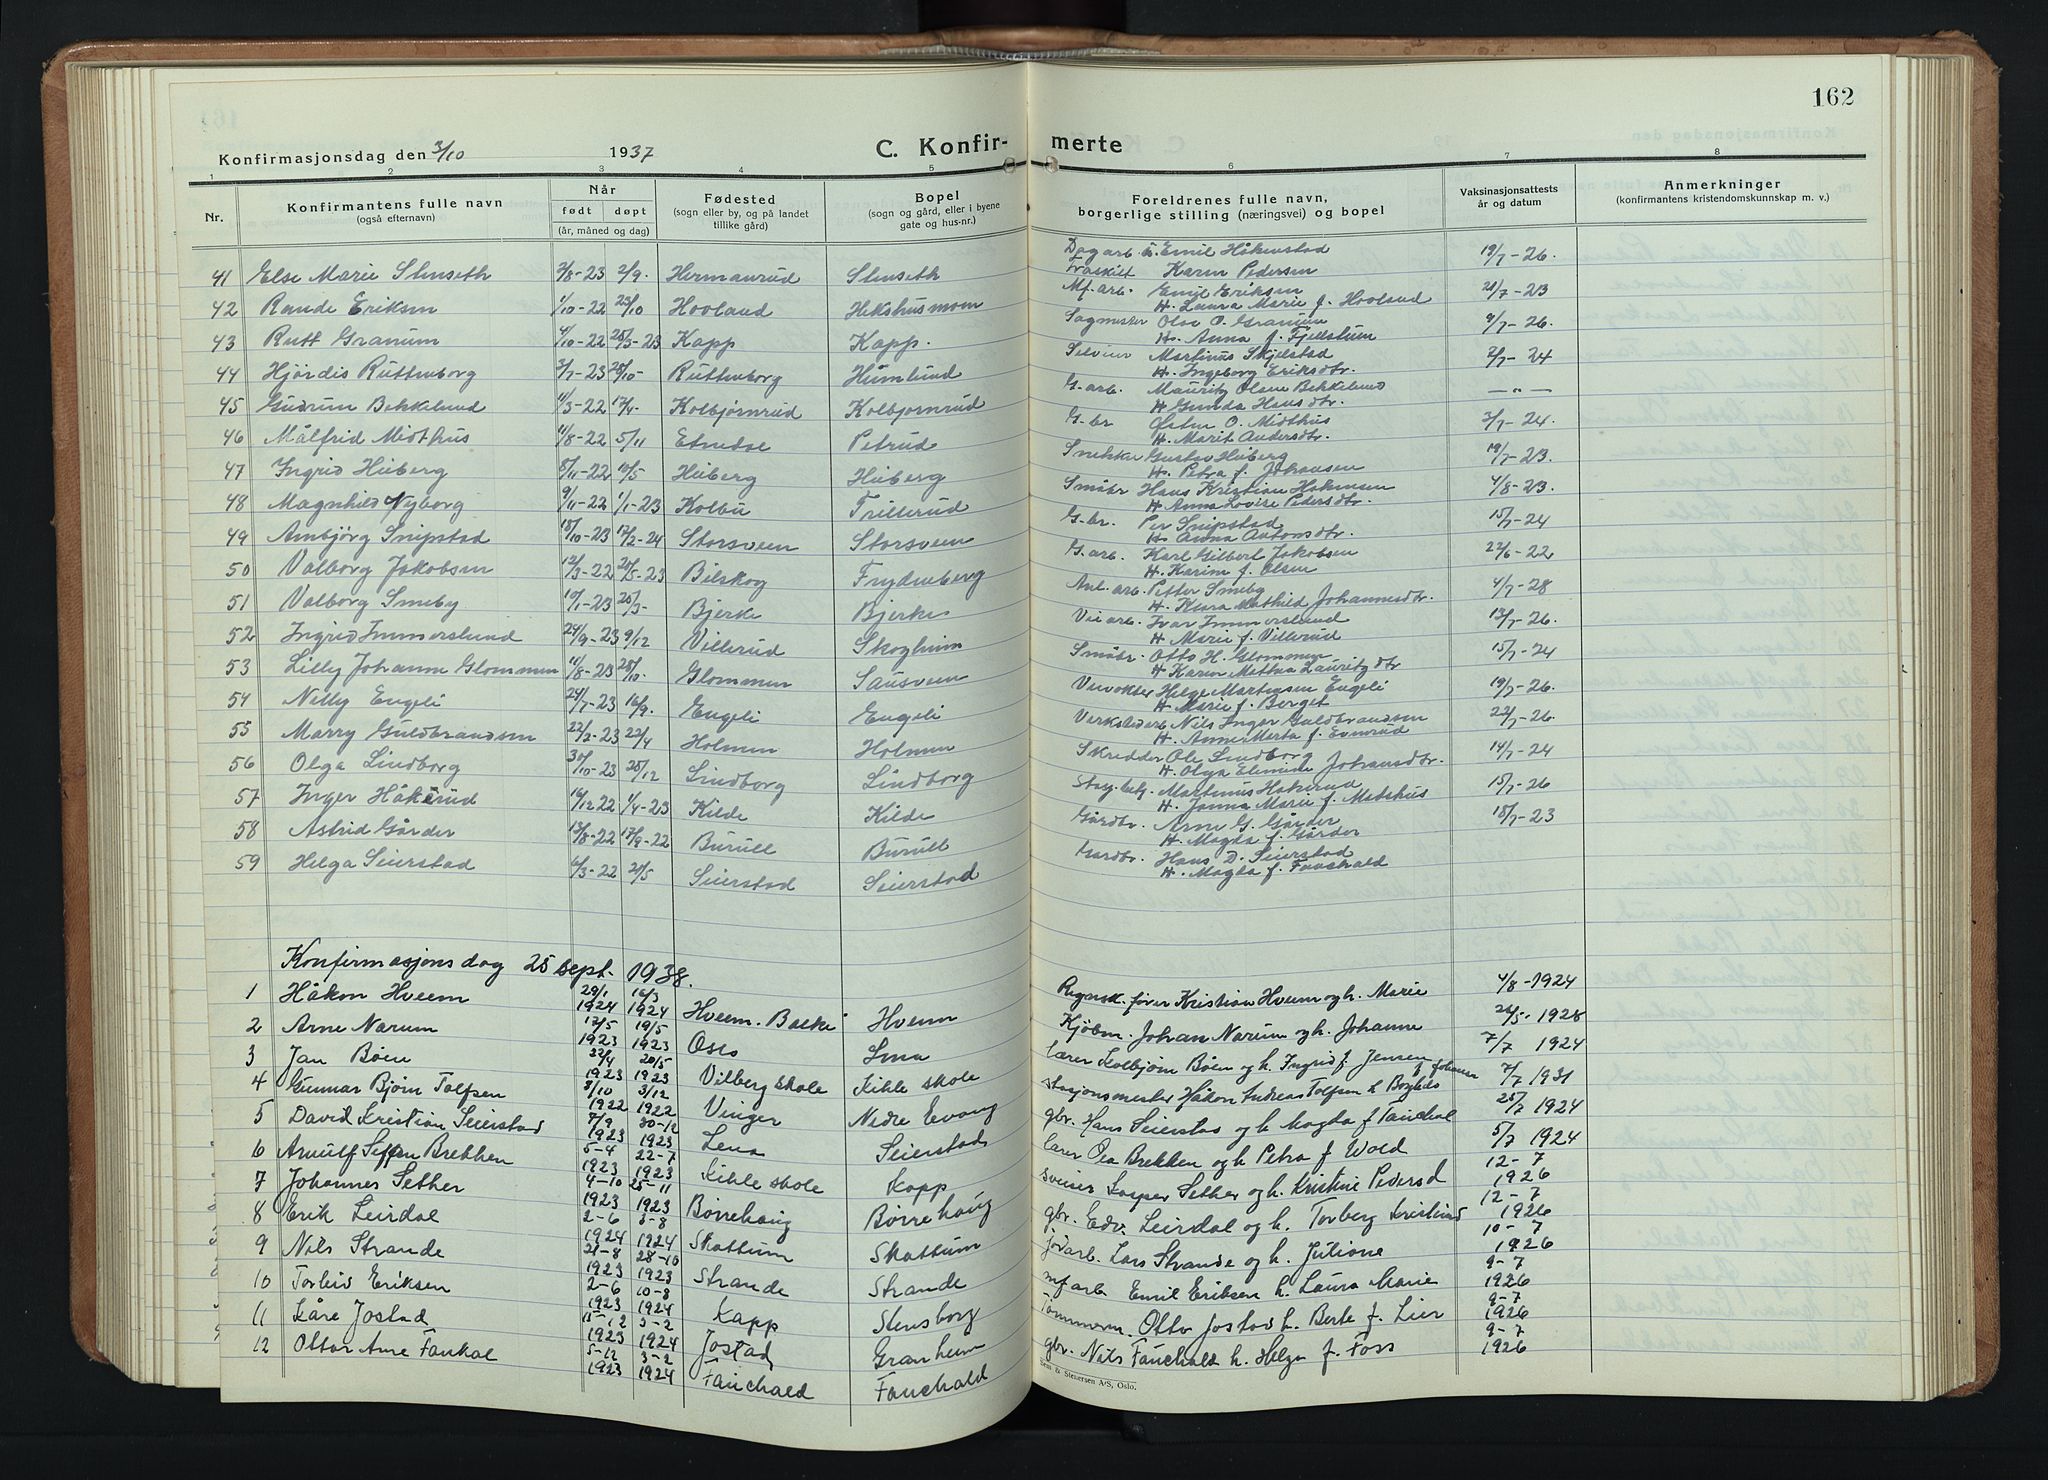 162
Konfirmasjonsdag den 3/10 1937 C. Konfirmerte
1 2 3 4 5 6 7 8
Nr. Konfirmantens fulle navn (også efternavn) Når født døpt (år, måned og dag) Fødested (sogn eller by, og på landet tillike gård) Bopel (sogn og gård, eller i byene gate og hus-nr.) Foreldrenes fulle navn, borgerlige stilling (næringsvei) og bopel Vaksinasjonsattests år og datum Anmerkninger (konfirmantens kristendomskunnskap m. v.)
41 Else Marie Stenseth 2/8-23 2/9. Hermanrud Stenseth Dagarb. Emil Håkenstad Fraskilt Karin Pedersen 19/7-26.
42 Rande Eriksen 1/10-22 23/10 Hooland Hekshusmoen Mf.arb. Emil Eriksen H. Laura Marie f. Hooland 21/7-23
43 Rutt Granum 4/10-22 25/3-23 Kapp Kapp. Sagmester Olav O. Granum H. Anna f. Fjeldstuen 9/7-26.
44 Hjördis Ruttenborg 3/7-23 28/10- Ruttenborg Humlund Martinus Skjelstad H. Ingeborg Eriksdtr. 2/7-24
45 Gudrun Bekkelund 11/3-22 17/4. Kolbjørnrud Kolbjørnrud G.arb. Mauritz Olsen Bekkelund H. Gunda Hansdtr. — " —
46 Målfrid Midthus 11/8-22 5/11 Etnedal Petrud G.br Østen O. Midthus H. Marit Andersdtr. 3/7-24.
47 Ingrid Huberg 8/11-22 10/5 Huberg Huberg Snekker Gustav Huberg H. Petra f. Johansen 19/7-23.
48 Magnhild Nyborg 9/11-22 1/1-23 Kolbu Trillerud Småbr Hans Kristian Hakensen H. Anna Lovise Pedersdtr. 4/8-23.
49 Arnbjörg Snipstad 18/10-23 17/2-24 Storsveen Storsveen G.br. Per Snipstad H. Anna Antonsdtr. 15/7-24
50 Valborg Jakobsen 12/3-22 20/5-23 Bilskog Frydenberg G.arb. Karl Gilbert Jakobsen H. Karin f. Olsen 22/6-22
51 Valborg Smeby 10/1-23 25/3- Bjerke Bjerke Anl.arb. Petter Smeby H. Klara Mathild Johannesdtr. 4/7-28
52 Ingrid Immerslund 24/9-23 9/12 Villerud Skogheim Veiarb. Ivar Immerslund H. Marie f. Villerud 13/7-26.
53 Lilly Johanne Glommen 11/8-23 28/10. Glommen Sausveen Småbr. Otto H. Glommen H. Karen Mathea Lauritzdtr 15/7-24
54 Nelly Engeli 24/7-23 16/9. Engeli Engeli Veivokter Helge Martinsen Engeli H. Marie f. Berget 19/7-26.
55 Marry Guldbrandsen 22/2-23 22/4 Holmen Holmen Nils Inger Guldbrandsen H. Anne Marta f. Evenrud 22/7-26.
56 Olga Lindborg 30/10-23 25/12 Lindborg Lindborg Skredder Ole Lindborg H. Olga Elmine Johansdtr. 14/7-24
57 Inger Håkerud 16/12-22 1/4-23 Kilde Kilde Martinus Håkerud H. Janna Marie f. Madshus 15/7-26
58 Astrid Gårder 13/8-22 17/9-22 Burull Burull Gårdbr. Arne G. Gårder H. Magda f. Gårder 18/7-23
59 Helga Seierstad 6/3-22 21/5 Seierstad Seierstad Gardbr. Hans D. Seierstad H. Magda f. Fauchald
Konfirmasjonsdag 25 sept. 1938.
1 Håkon Hveem 29/1 1924 16/3 1924 Hveem. Balke Hveem Regnsk.fører Kristian Hveem og h. Marie 4/8-1924
2 Arne Narum 17/5 1923 19/5 1923 Oslo Lena Kjøbm. Johan Narum og h. Johanne 26/5-1928
3 Jan Bøen 22/4 1923 20/5 1923 Vilberg skole Kihle skole lærer Kolbjørn Bøen og h. Ingrid f. Jensen 7/7 1924
4 Gunnar Bjørn Tolfsen 8/10 1922 3/12 1922 Vinger Nedre Evang stasjonsmester Håkon Andreas Tolfsen h. Borghild f Johansen 7/7 1931
5 David Kristian Seierstad 7/9 1923 30-12 1923 Lena Seierstad gbr. Hans Seierstad og h Magda f Fauchal 25/7 1924
6 Arnulf Steffen Brekken 5-4 1923 22-7 1923 Kihle skole Kapp lærer Ola Brekken og h Petra f Wold 5/7 1924
7 Johannes Sether 4-10 1923 25-11 1923 Børrehaug Børrehaug sveiser Kasper Sether og h. Kristine Pedersd 12-7 1926
8 Erik Leirdal 2-6 1924 3-8 1924 Skattum Skattum gbr. Edv. Leirdal og h. Torberg Kristiansd 12-7 1926
9 Nils Strande 21-8 1923 28-10 1923 Strande Strande jordarb. Lars Strande og h. Juliane 10-7 1926
10 Torleiv Eriksen 2-6 1923 10-8 1924 Kapp Stensborg mf arb Emil Eriksen h. Laura Marie 9-7 1926
11 Kåre Jostad 15-12 1923 3-2 1924 Jostad Granheim Tømmerm. Otto Jostad h. Berte f. Lier 9-7 1926
12 Ottar Arne Faukal 5-12 1923 3-2 1924 Fauchald Fauchald gbr. Nils Fauchald h. Helga f. Foss 9-7 1926
Sem & Stenersen A/S, Oslo.